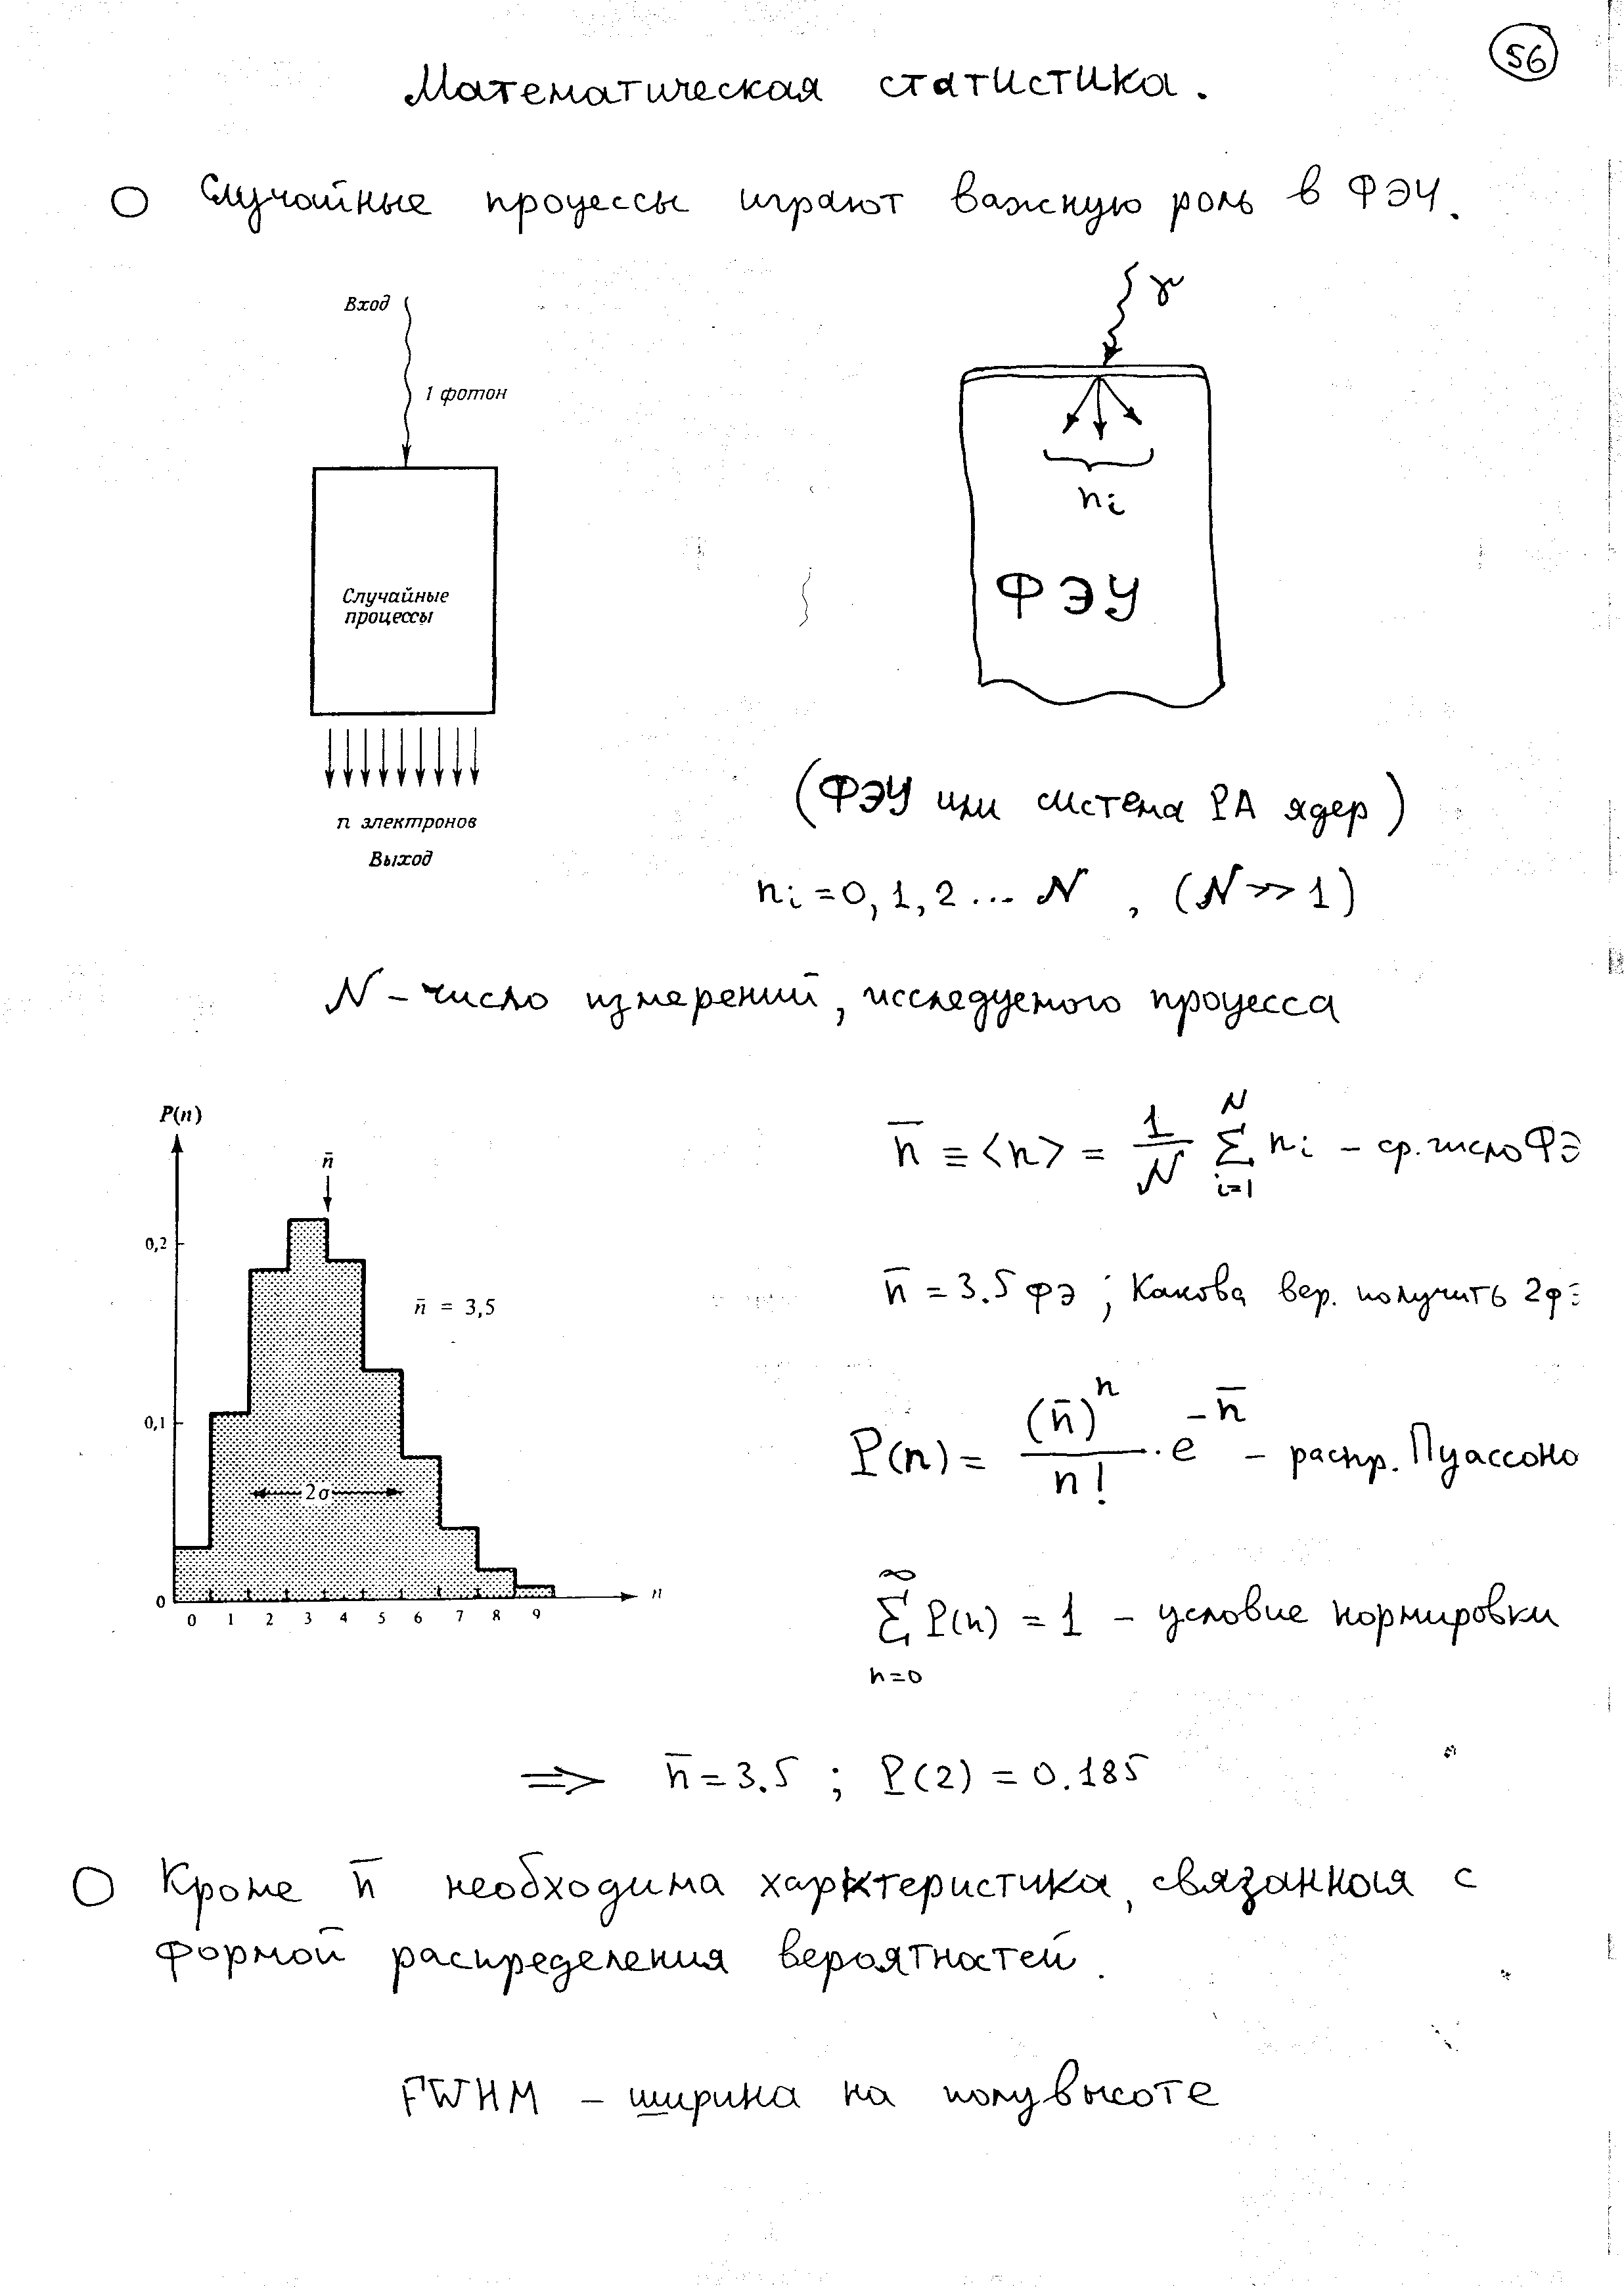 56
Математическая статистика.
Случайные процессы играют важную роль в ФЭУ.
Вход
1 фотон
Случайные
процессы
n электронов
Выход
γ
ni
ФЭУ
(ФЭУ или система РА ядер)
ni = 0, 1, 2 ... N , (N >> 1)
N – число измерений, исследуемого процесса
P(n)
n̄
0,2
n̄ = 3,5
0,1
2σ
0
n
0 1 2 3 4 5 6 7 8 9
n̄ ≡ <n> = 1/N N Σ i=1 ni – ср. число ФЭ
n̄ = 3.5 фэ ; Какова вер. получить 2фэ
P(n) = (n̄)^n / n! · e^-n̄ – распр. Пуассона
∞ Σ n=0 P(n) = 1 – условие нормировки
⇒ n̄ = 3.5 ; P(2) = 0.185
Кроме n̄ необходима характеристика, связанная с
формой распределения вероятностей.
FWHM – ширина на полувысоте